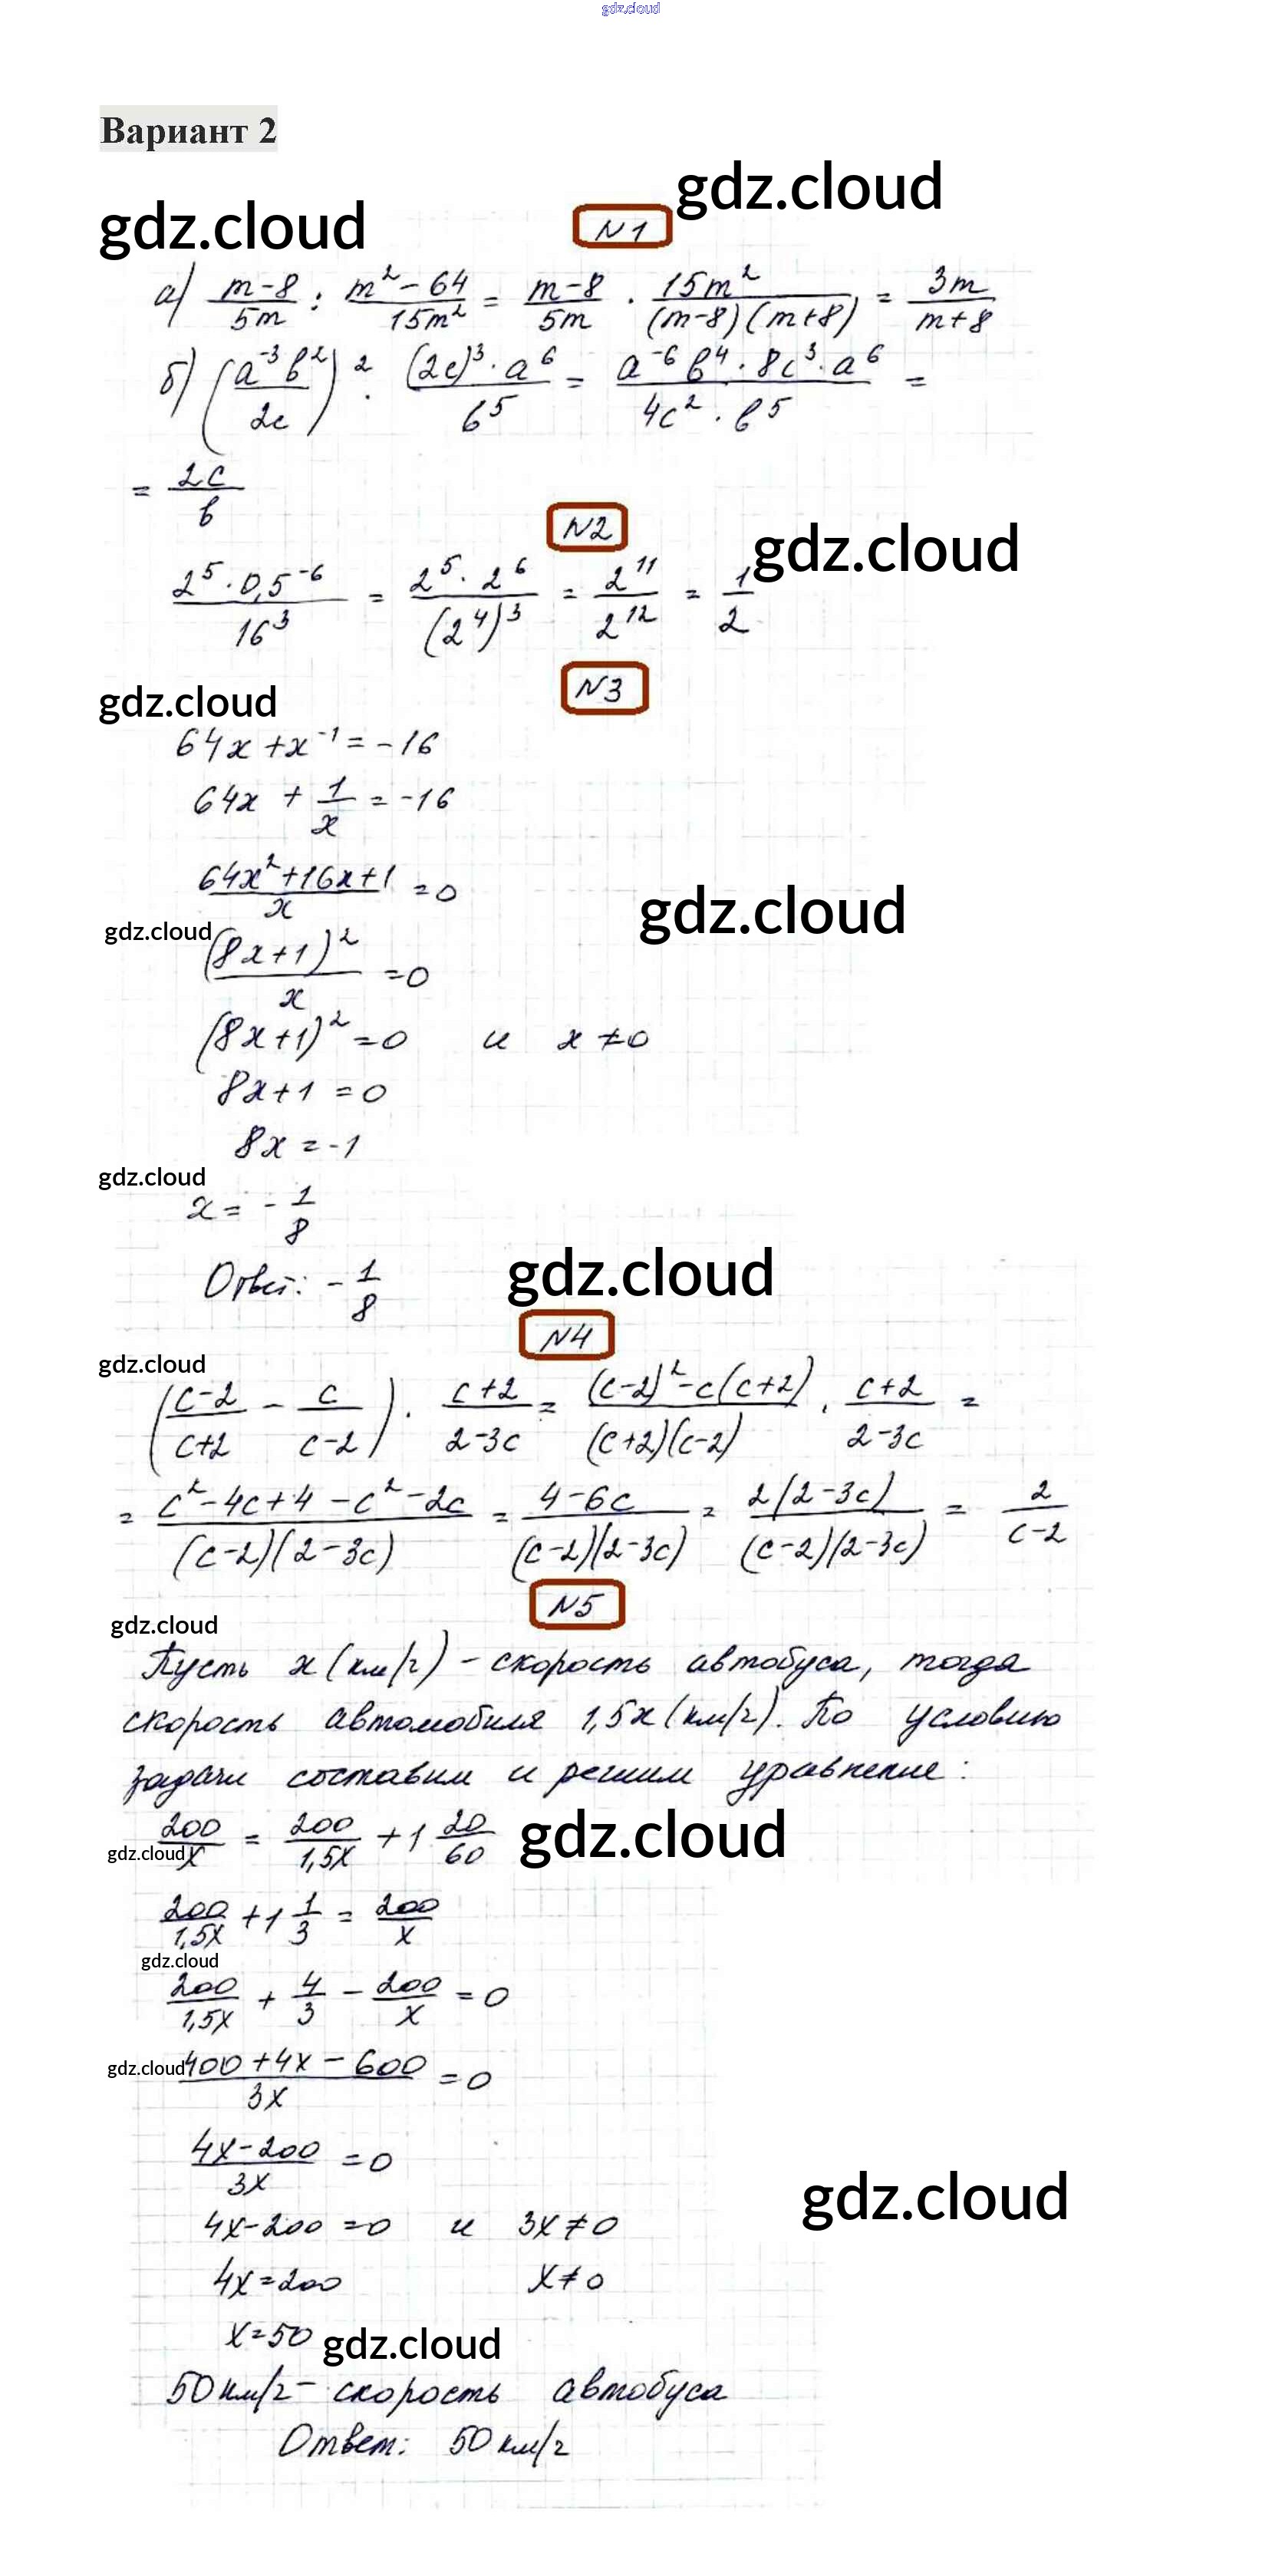 gdz.cloud
Вариант 2
gdz.cloud
gdz.cloud
N1
а) (m-8)/(5m) : (m²-64)/(15m²) = (m-8)/(5m) · (15m²)/((m-8)(m+8)) = (3m)/(m+8)
б) ((a⁻³b²)/(2c))² · ((2c)³·a⁶)/(b⁵) = (a⁻⁶b⁴·8c³·a⁶)/(4c²·b⁵) =
= (2c)/b
N2
gdz.cloud
(2⁵·0,5⁻⁶)/(16³) = (2⁵·2⁶)/((2⁴)³) = 2¹¹/2¹² = 1/2
N3
gdz.cloud
64x+x⁻¹=-16
64x + 1/x = -16
(64x²+16x+1)/x = 0
gdz.cloud
gdz.cloud
(8x+1)²/x = 0
(8x+1)²=0 и x≠0
8x+1=0
8x=-1
gdz.cloud
x = -1/8
Ответ: -1/8
gdz.cloud
N4
gdz.cloud
((c-2)/(c+2) - c/(c-2)) · (c+2)/(2-3c) = ((c-2)²-c(c+2))/((c+2)(c-2)) · (c+2)/(2-3c) =
= (c²-4c+4-c²-2c)/((c-2)(2-3c)) = (4-6c)/((c-2)(2-3c)) = (2(2-3c))/((c-2)(2-3c)) = 2/(c-2)
N5
gdz.cloud
Пусть x(км/ч) - скорость автобуса, тогда
скорость автомобиля 1,5x(км/ч). По условию
задачи составим и решим уравнение:
200/x = 200/(1,5x) + 1 20/60
gdz.cloud
gdz.cloud
200/(1,5x) + 1 1/3 = 200/x
gdz.cloud
200/(1,5x) + 4/3 - 200/x = 0
gdz.cloud
(400+4x-600)/(3x) = 0
(4x-200)/(3x) = 0
gdz.cloud
4x-200=0 и 3x≠0
4x=200 x≠0
x=50
gdz.cloud
50км/ч - скорость автобуса
Ответ: 50км/ч